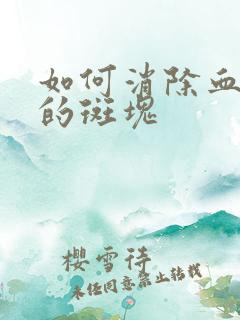 如何消除血
的斑块
樱雪待
未经同意禁止转载